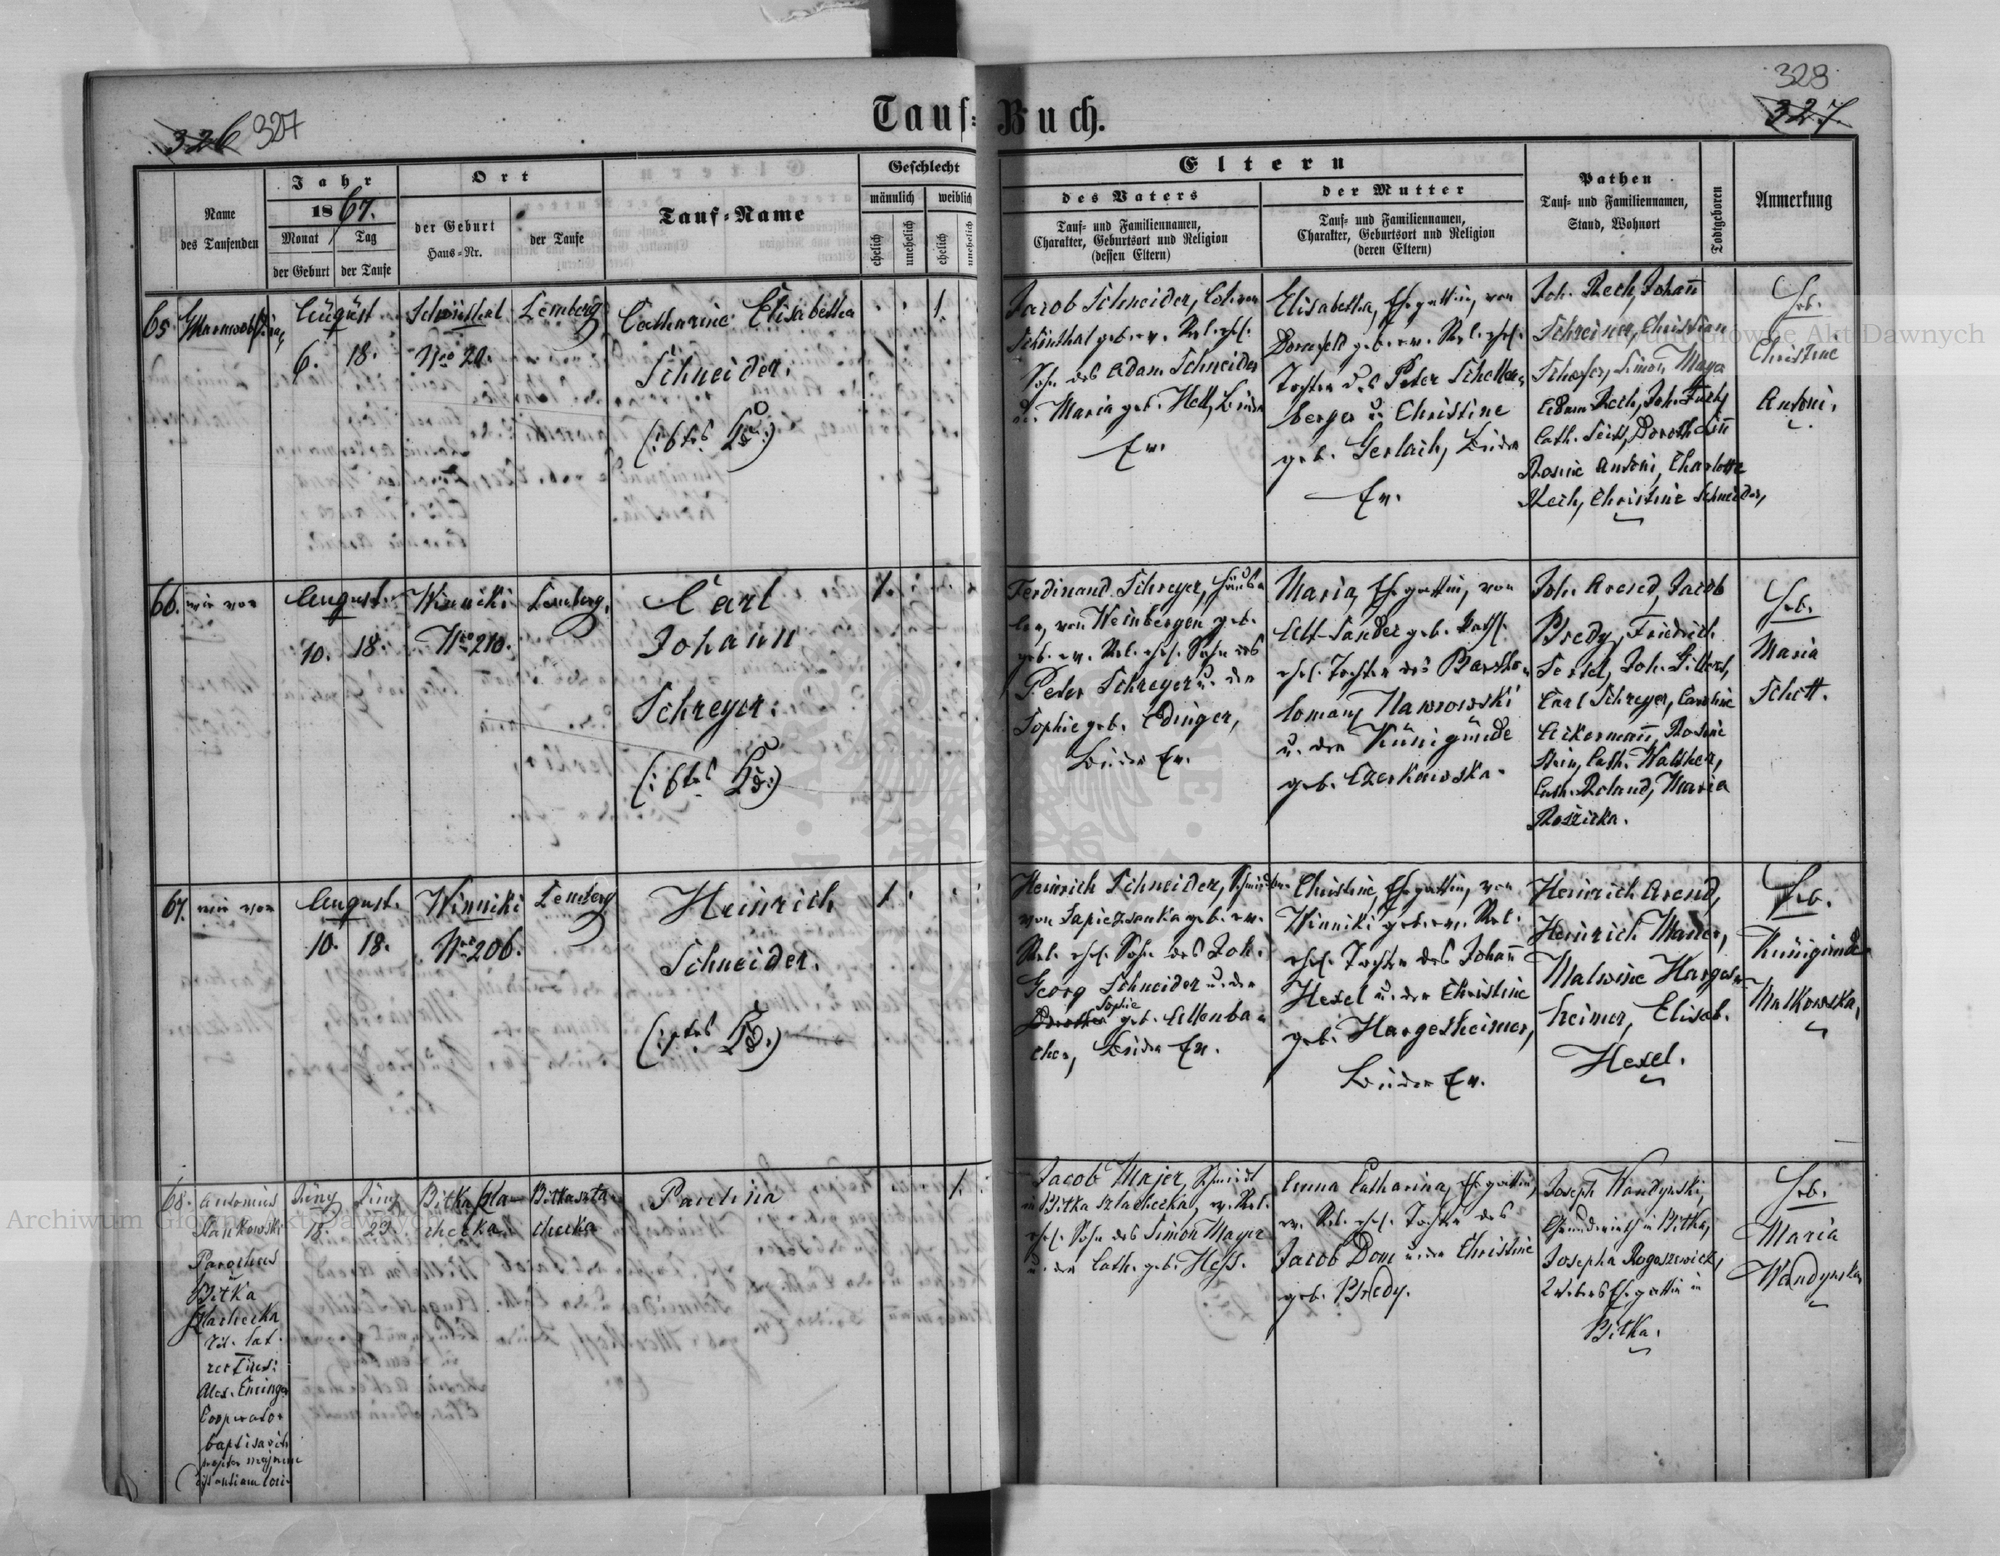 326 327
328
327.
Tauf-Buch.
Name
des Taufenden
Jahr
1867.
Monat Tag
der Geburt der Taufe
Ort
der Geburt
Haus-Nr.
der Taufe
Tauf-Name
Geschlecht
männlich weiblich
ehelich unehelich ehelich unehelich
Eltern
des Vaters
Tauf- und Familiennamen,
Charakter, Geburtsort und Religion
(dessen Eltern)
der Mutter
Tauf- und Familiennamen,
Charakter, Geburtsort und Religion
(deren Eltern)
Pathen
Tauf- und Familiennamen,
Stand, Wohnort
Todtgeboren
Anmerkung
65.
August
6. 18.
Schönthal
Nro 20.
Lemberg
Catharine Elisabetha
Schneider.
1.
Jacob Schneider,
Schönthal geb. ev. Rel. ehl.
Sohn des Adam Schneider
Maria geb. Hell, beide
Ev.
Elisabetha, Ehegattin, von
Dornfeld geb. ev. Rel. ehl.
Tochter des Peter Schellen-
berger u. Christine
geb. Gerlach, beide
Ev.
Joh. Rech, Johañ
Schreiner, Christian
Schäfer, Simon
Adam Rech, Joh.
Cath.
Rosine Antoni, Charlotte
Rech, Christine Schneider,
Heb.
Christine
Antoni.
66. wie vor
August.
10. 18.
Winniki
Nro 210.
Lemberg.
Carl
Johann
Schreyer.
1.
Ferdinand Schreyer,
von Weinbergen geb.
geb. ev. Rel. ehl. Sohn des
Peter Schreyer u. der
Sophie geb. Edinger,
beide Ev.
Maria, Ehegattin, von
Alt-Sandez geb. Kath.
ehl. Tochter des Bartho-
lomäus Nawrowski
u. der Künigunde
geb. Czerkawska.
Joh. Arend, Jacob
Bredy, Friedrich
Carl Schreyer, Caroline
Ackermañ, Rosine
Stein, Cath. Walther,
Cath. Roland, Maria
Rosička.
Heb.
Maria
Schott.
67. wie vor
August.
10. 18.
Winniki
Nro 206.
Lemberg
Heinrich
Schneider.
1.
Heinrich Schneider,
von Sapiezanka geb. ev.
Rel. ehl. Sohn des Joh.
Georg Schneider u. der
Sophie
Dorothea geb. Altenba-
cher, beide Ev.
Christine, Ehegattin, von
Winniki geb. ev. Rel.
ehl. Tochter des Johañ
Hexel u. der Christine
geb. Hargesheimer,
beide Ev.
Heinrich Arend,
Heinrich Maurer,
Malwine Harges-
heimer, Elisab.
Hexel.
Heb.
Künigunde
Malkowska,
68. Antonius
Stankowski
Parochus
Bitka
Szlachecka
rit. lat.
Cooperator
baptisavit
Juny Juny
18. 23.
Bitka szla-
checka
Bitka szla-
checka
Paulina
1.
Jacob Majer, Schmidt
in Bitka szlachecka, ev. Rel.
ehl. Sohn des Simon Mayer
u. der Cath. geb. Heß.
Anna Catharina, Ehegattin,
ev. Rel. ehl. Tochter des
Jacob Dom u. der Christine
geb. Bredy.
Joseph Wandynski,
Grundwirth in Bitka,
Josepha Rogaszewick,
Ehegattin in
Bitka.
Heb.
Maria
Wandynska
Archiwum Główne Akt Dawnych
Archiwum Główne Akt Dawnych